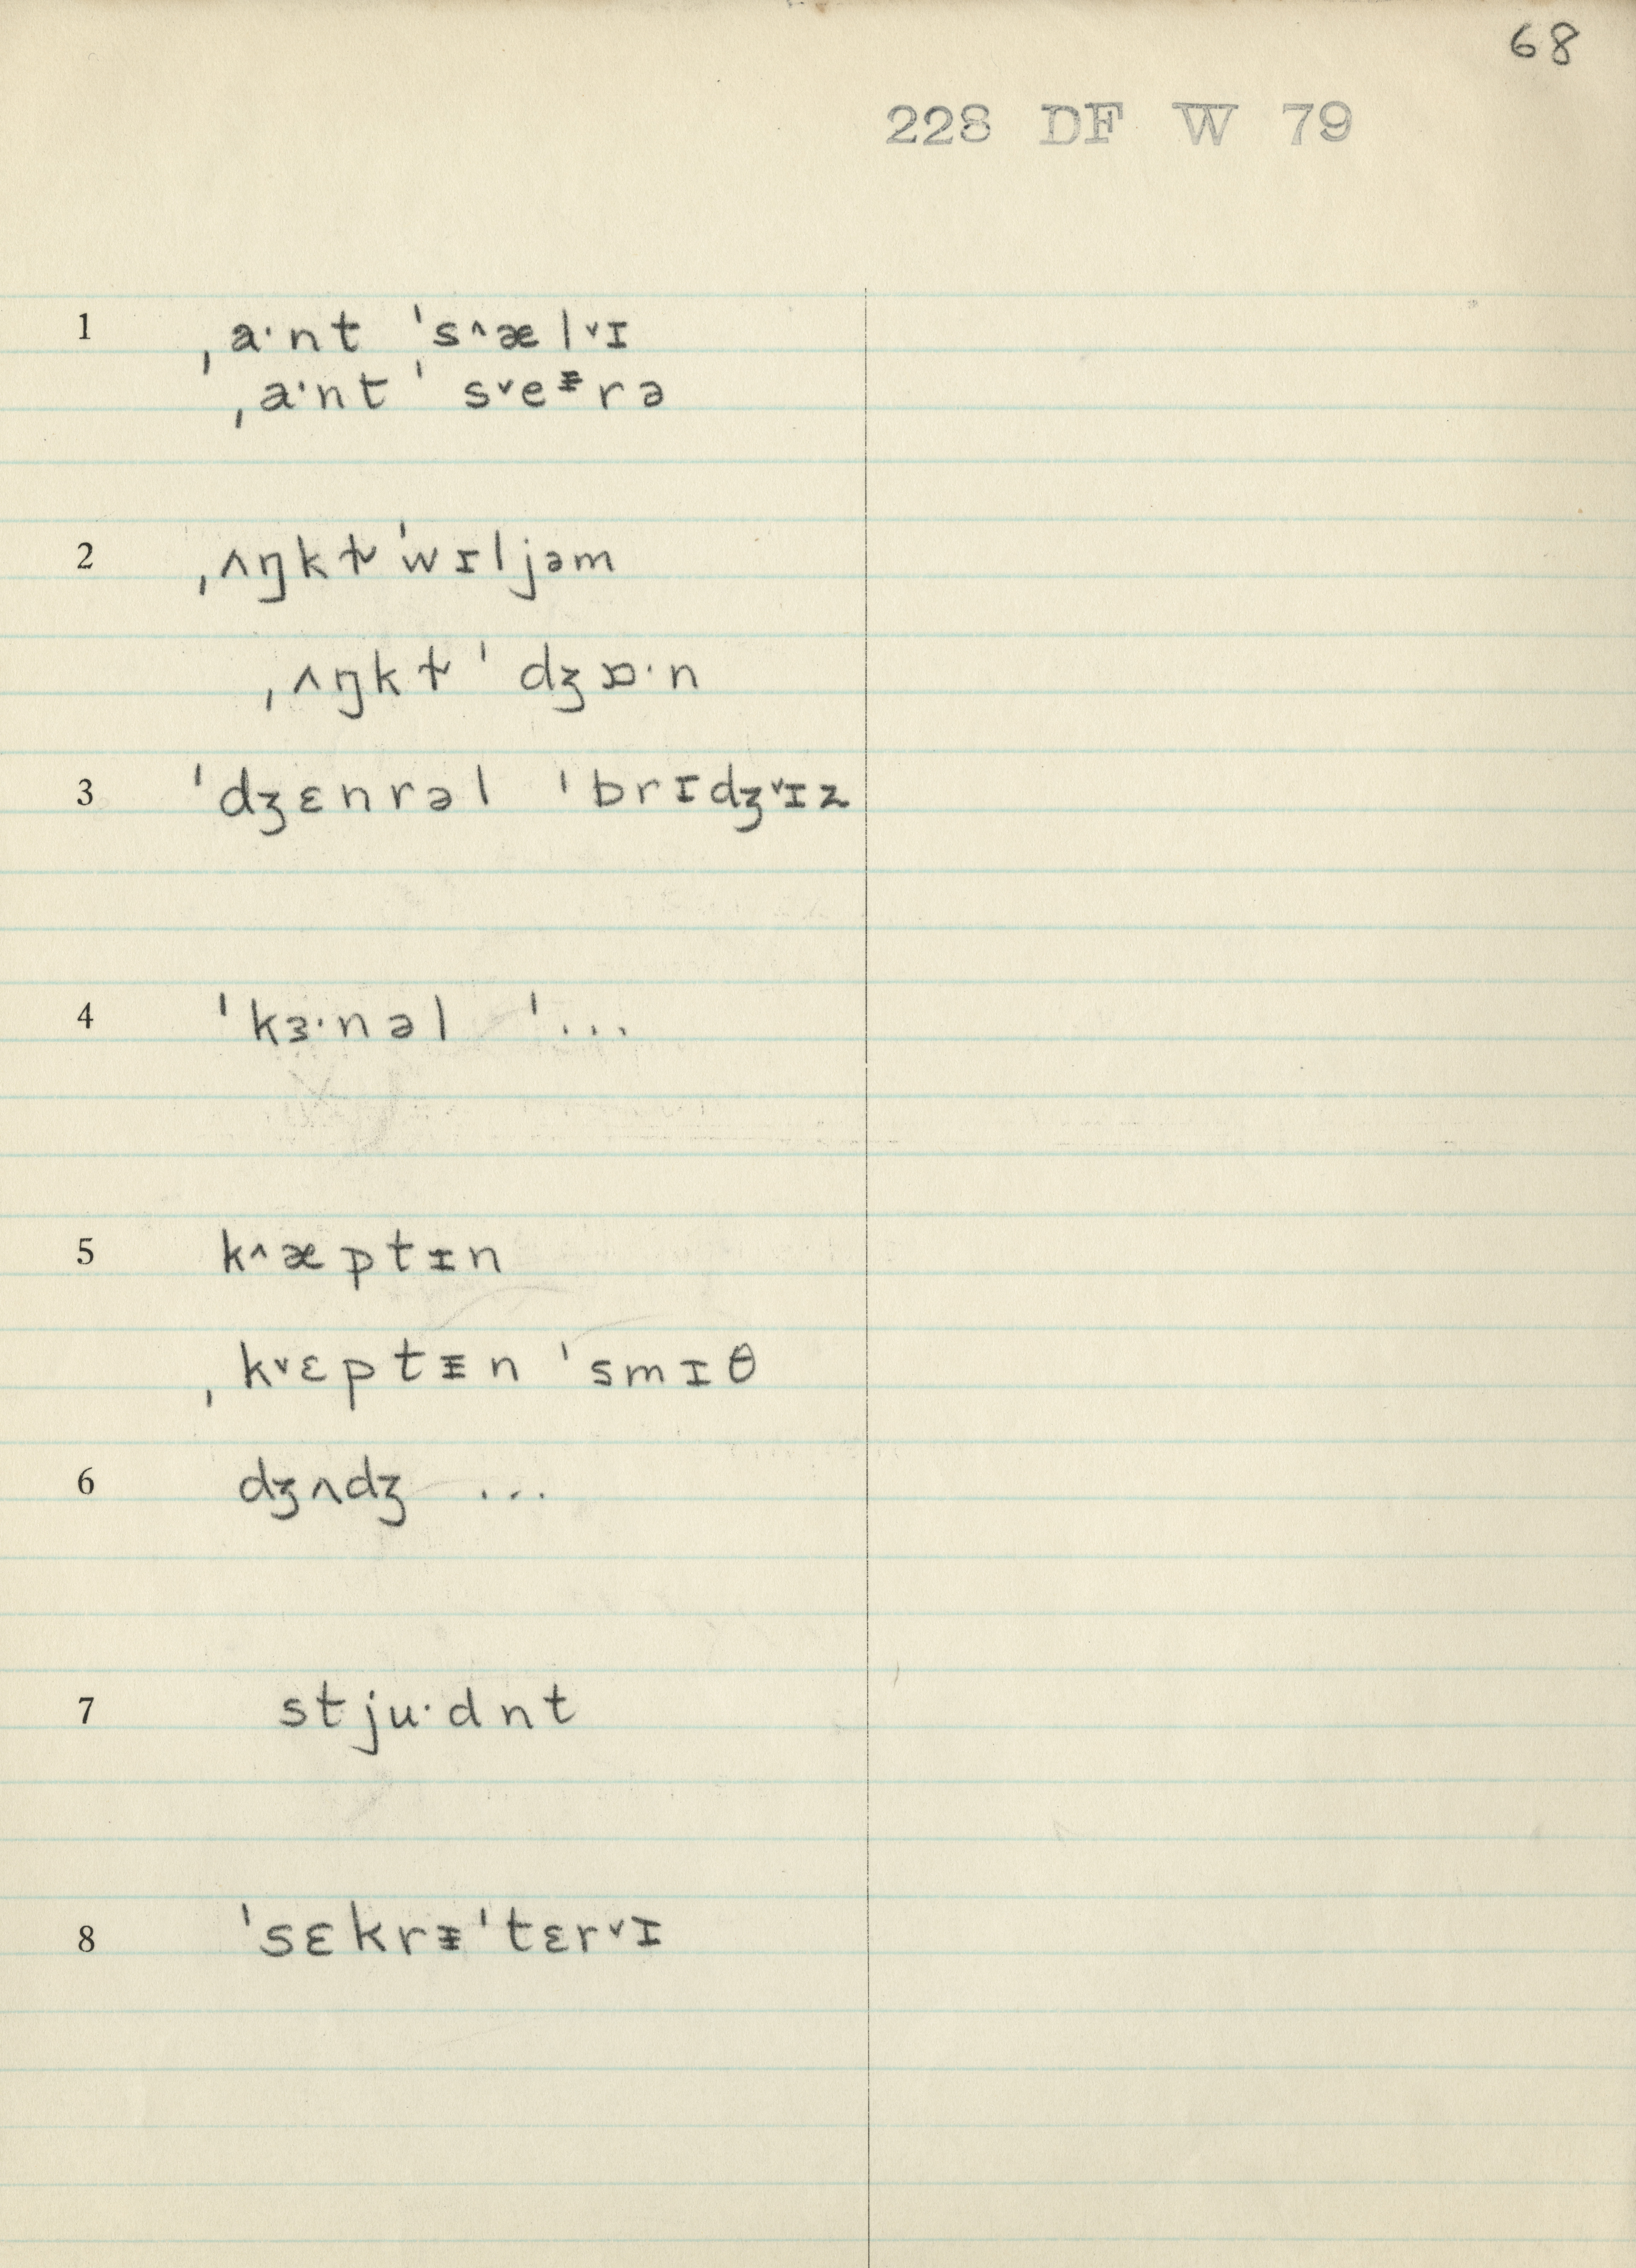 68
228 DF W 79
1 ˌa·nt ˈs^æl˅ɪ
ˌa·nt ˈs˅eᵻrə
2 ˌʌŋkɫ ˈwɪljəm
ˌʌŋkɫ ˈdʒɒ·n
3 ˈdʒɛnrəl ˈbrɪdʒ˅ɪz
4 ˈkɜ·nəl ˈ...
5 k^æptɪn
ˌk˅ɛptᵻn ˈsmɪθ
6 dʒʌdʒ ...
7 stju·dnt
8 ˈsɛkrᵻˈtɛr˅ɪ